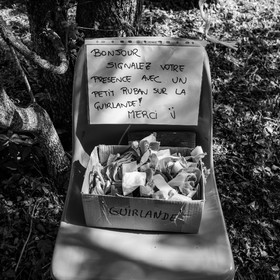 BONJOUR
SIGNALEZ VOTRE
PRESENCE AVEC UN
PETIT RUBAN SUR LA
GUIRLANDE!
MERCI ü
GUIRLANDE